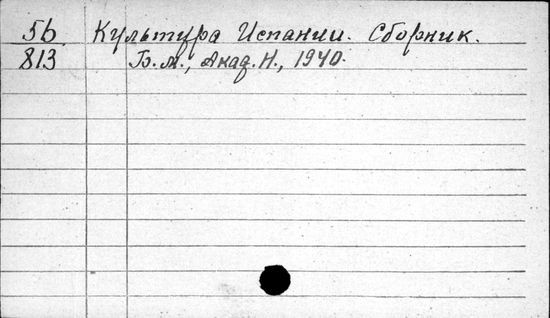 5b Культура Испании. Сборник.
813 Б.м., Акад. Н., 1940.